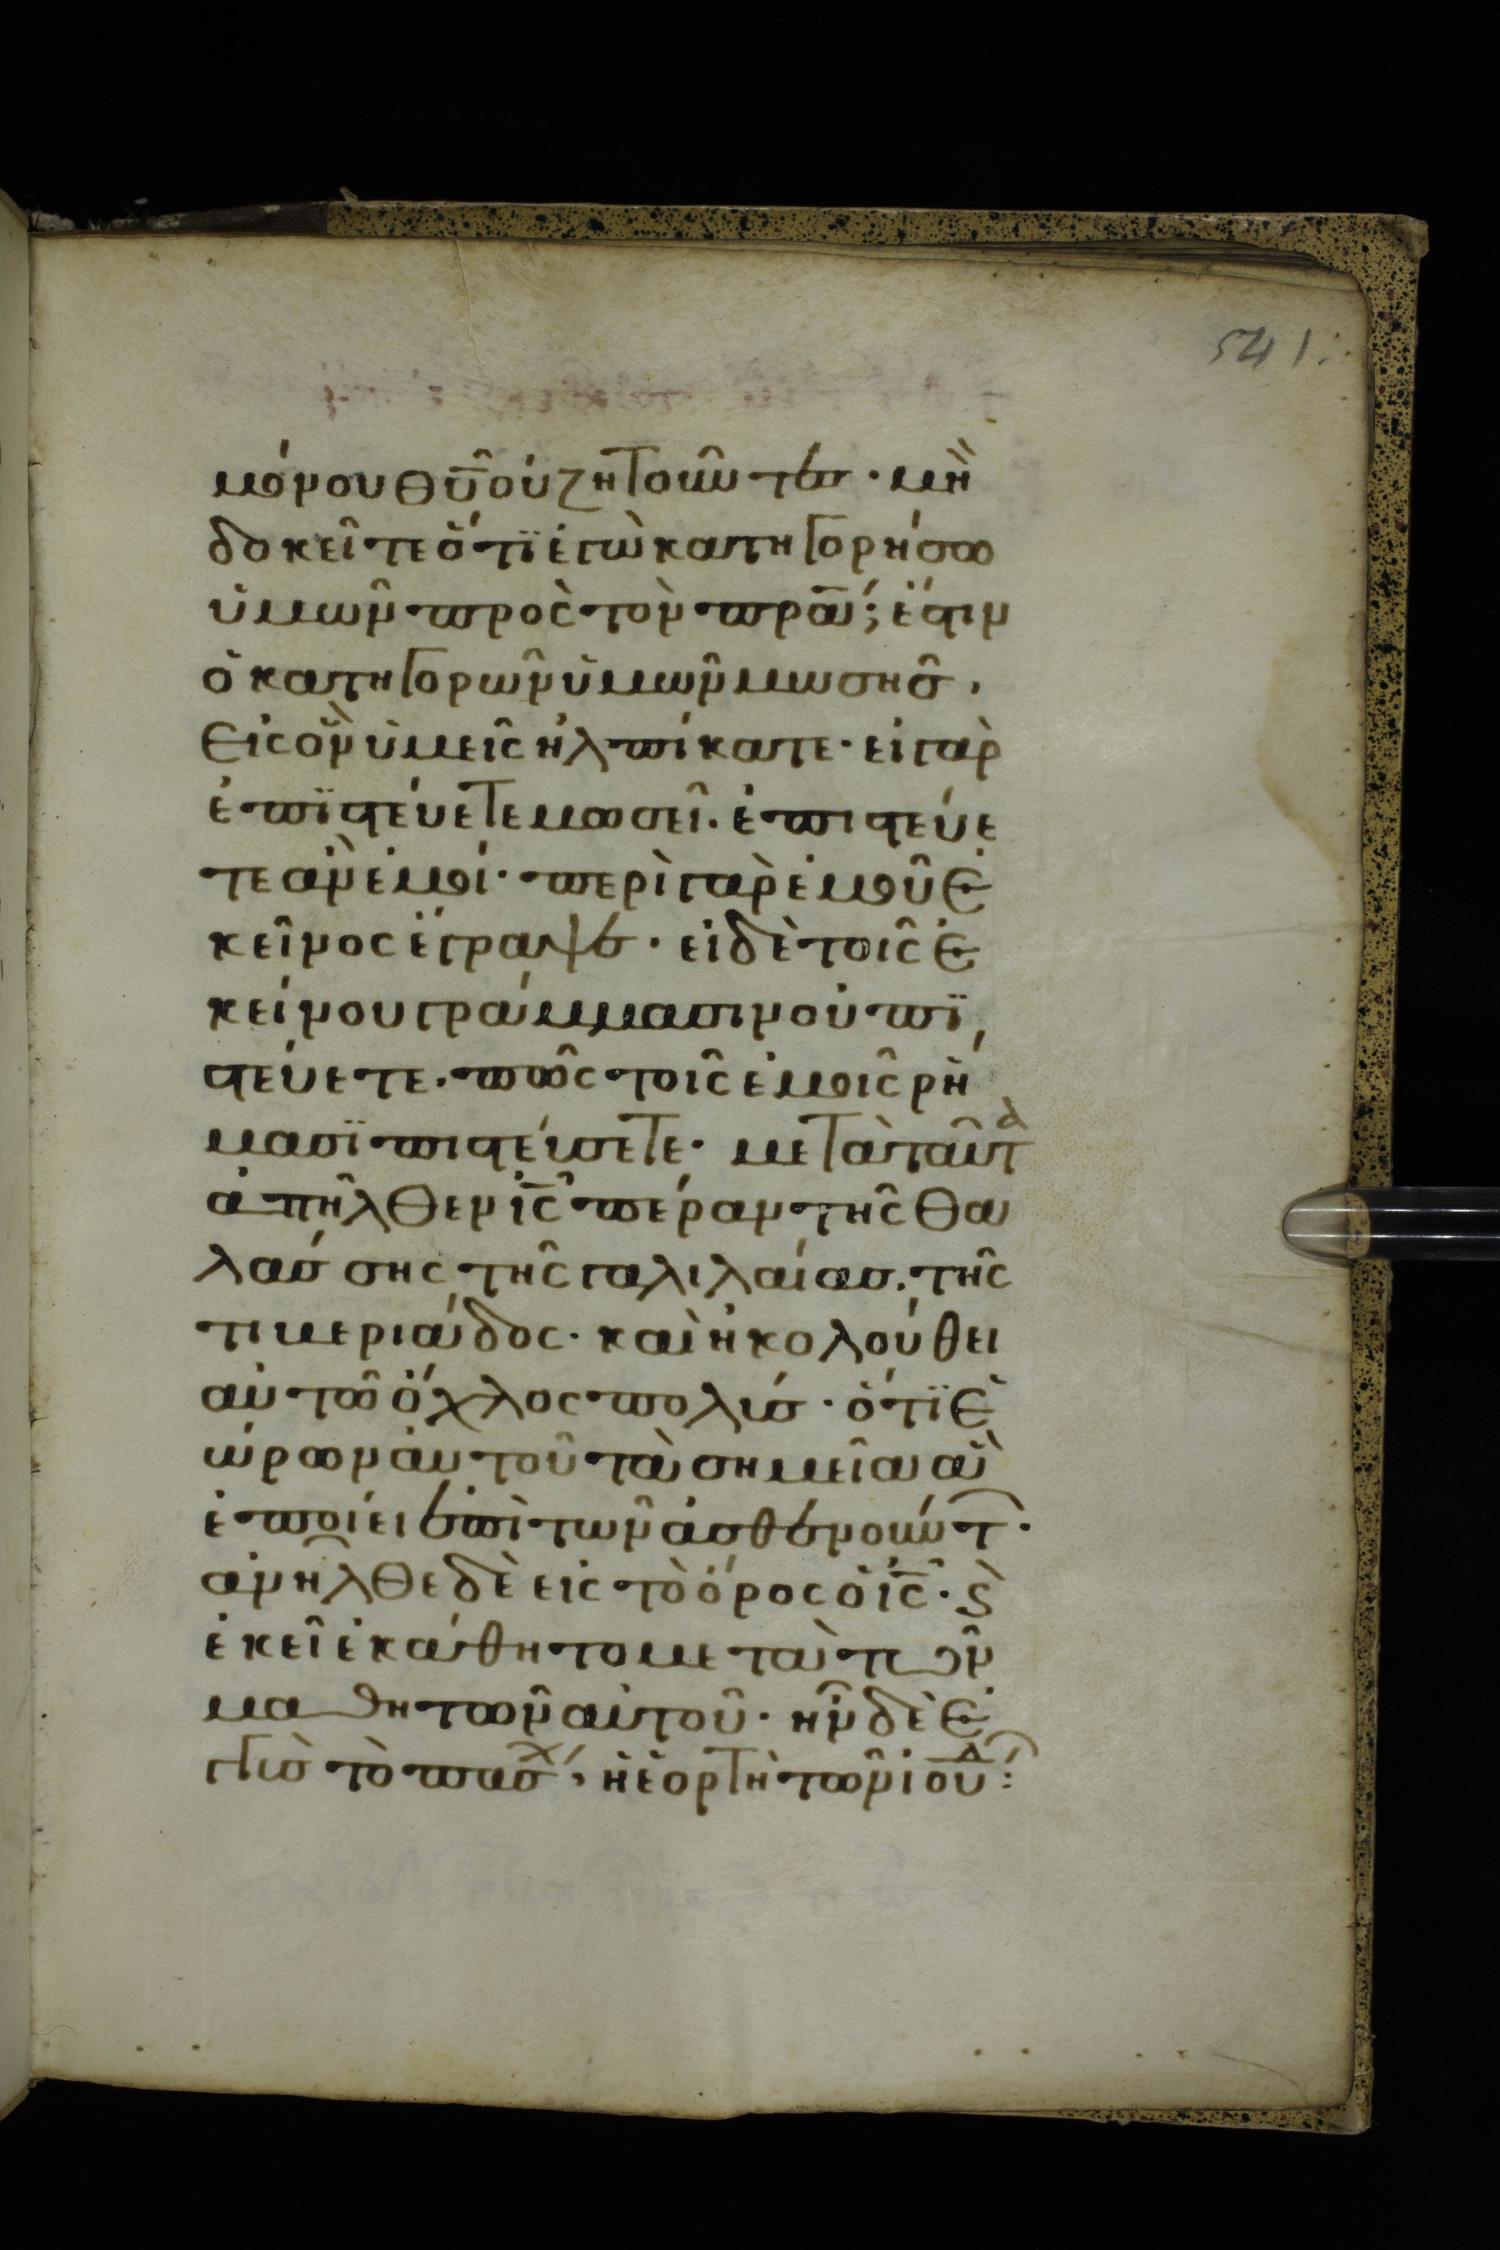 541.
μόνου θῡ οὐ ζητοῦντες · μὴ
δοκεῖτε ὅτϊ ἐγὼ κατηγορήσω
ὑμῶν πρὸς τὸν πρ̄α; ἔστιν
ὁ κατηγορῶν ὑμῶν μωσῆς,
Εἰς ὃν ὑμεῖς ἠλπίκατε · εἰ γὰρ
ἐπϊστεύετε μωσεῖ. ἐπιστεύε
τε ἂν ἐμοί · περὶ γὰρ ἐμοῦ ἐ
κεῖνος ἔγραψεν · εἰ δὲ τοῖς ἐ
κείνου γράμμασιν οὐ πϊ
στεύετε. πῶς τοῖς ἐμοῖς ρή
μασϊ πιστεύσετε · μετὰ ταῦτα
ἀπῆλθεν ῑς πέραν τῆς θα
λάσσης τῆς γαλιλαίας. τῆς
τιβεριάδος · καὶ ἠκολούθει
αὐτῶ ὄχλος πολύς · ὅτϊ ἑ
ώρων αὐτοῦ τὰ σημεῖα ἃ
ἐποίει ἐπὶ τῶν ἀσθενούντ ·
ἀνῆλθε δὲ εἰς τὸ ὄρος ὁ ῑς · ϗ
ἐκεῖ ἐκάθητο μετὰ τῶν
μαθητῶν αὐτοῦ · ἦν δὲ ἐ
γγὺς τὸ πάσχ, ἡ ἑορτὴ τῶν ἰουδ :